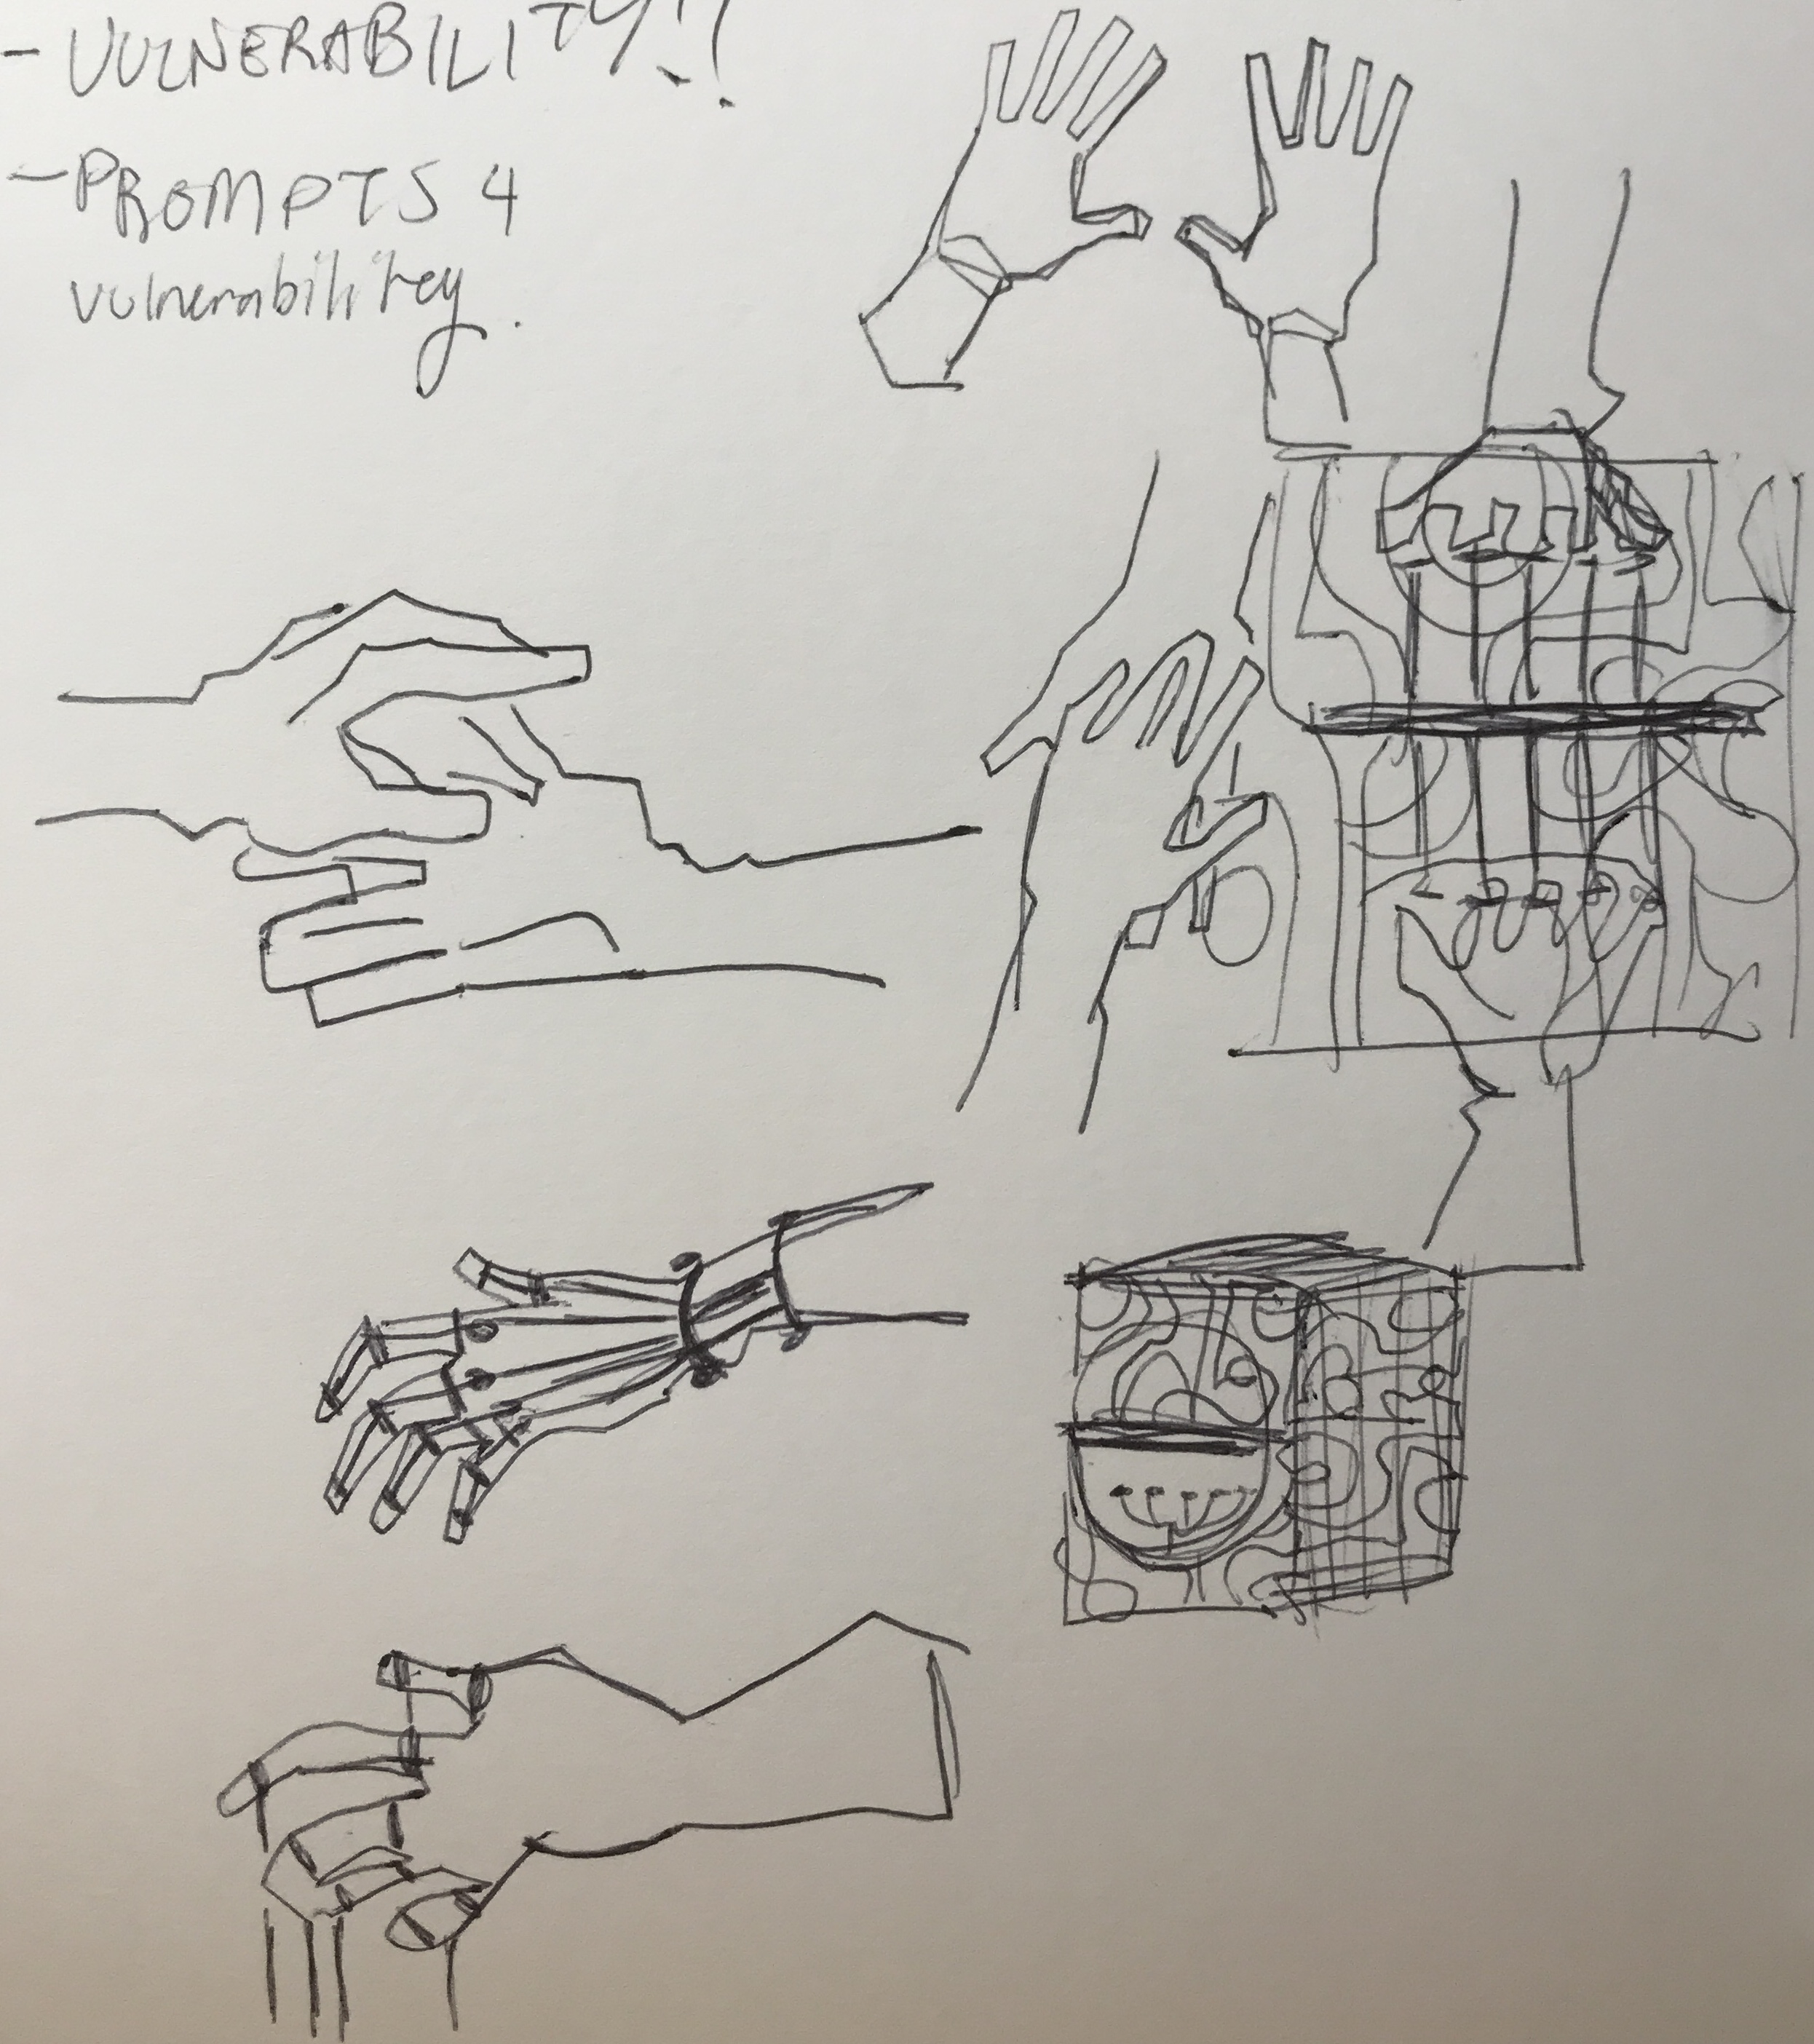 - VULNERABILITY!!
- PROMPTS 4
vulnerabilitey.